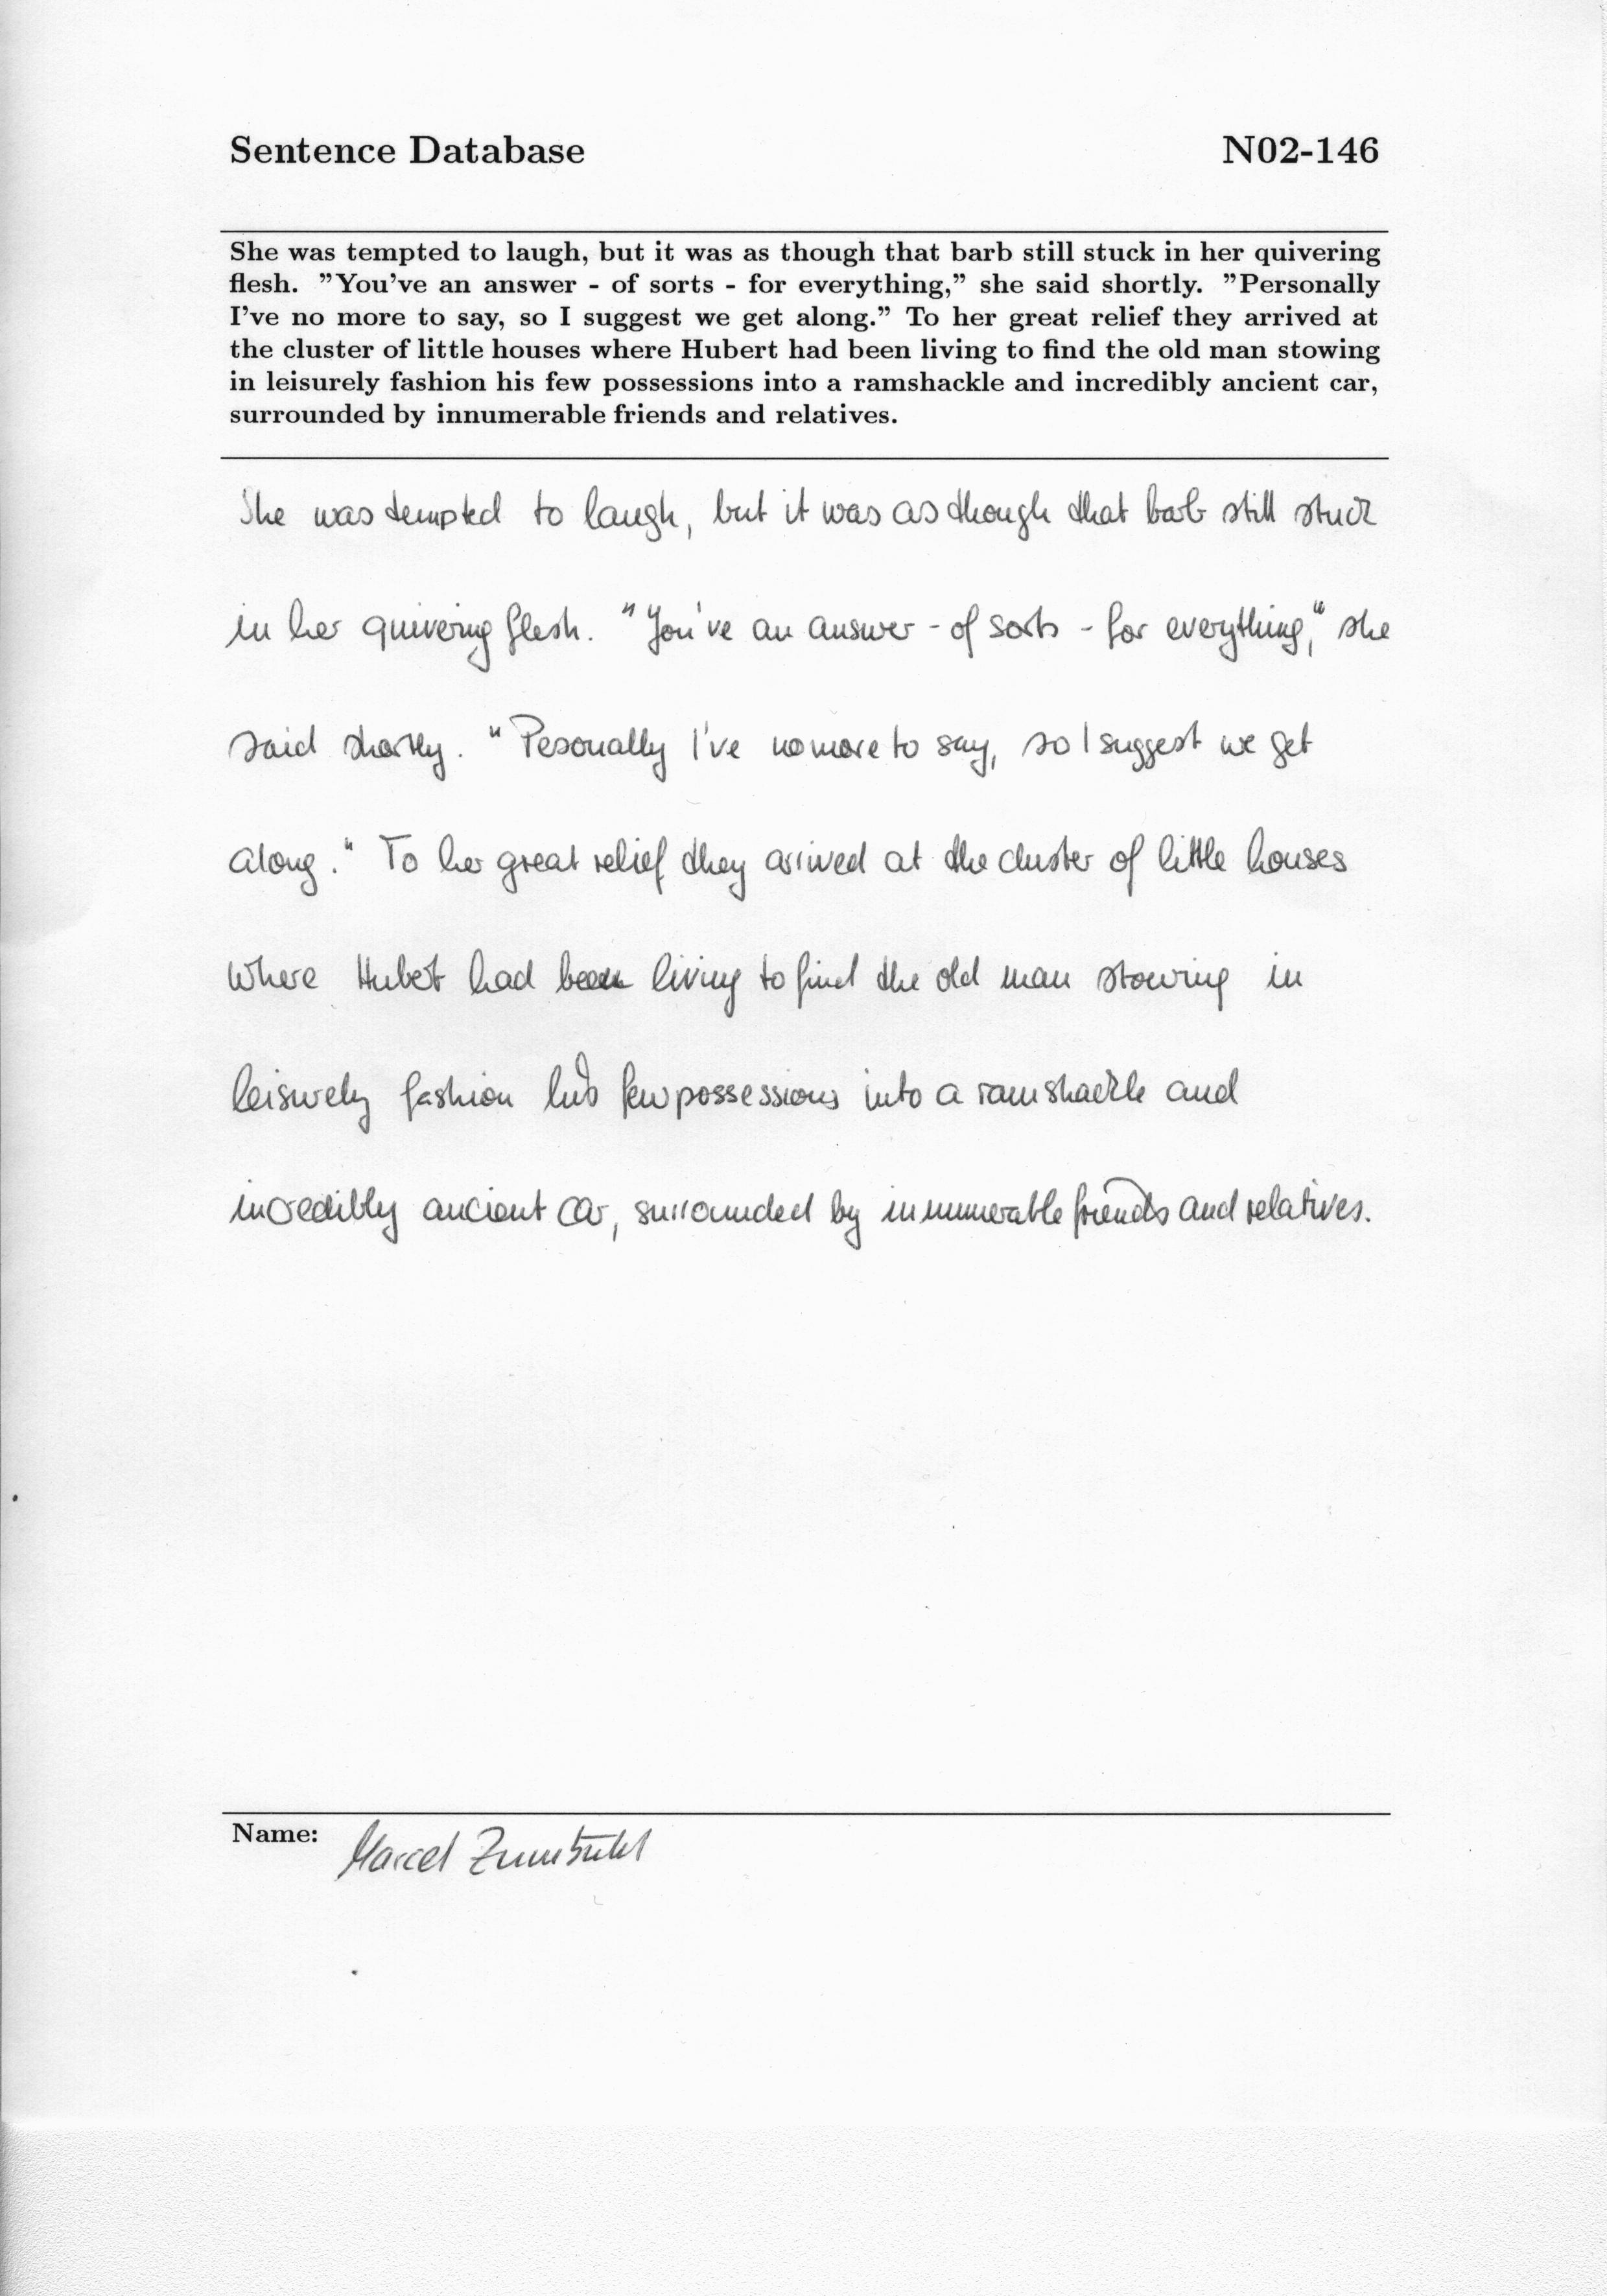 Sentence Database N02-146
She was tempted to laugh, but it was as though that barb still stuck in her quivering
flesh. "You've an answer - of sorts - for everything," she said shortly. "Personally
I've no more to say, so I suggest we get along." To her great relief they arrived at
the cluster of little houses where Hubert had been living to find the old man stowing
in leisurely fashion his few possessions into a ramshackle and incredibly ancient car,
surrounded by innumerable friends and relatives.
She was tempted to laugh, but it was as though that barb still stuck
in her quivering flesh. "You've an answer - of sorts - for everything," she
said shortly. "Pesonally I've no more to say, so I suggest we get
along." To her great relief they arrived at the cluster of little houses
where Hubert had been living to find the old man stowing in
leisurely fashion his few possessions into a ramshackle and
incredibly ancient car, surrounded by innumerable friends and relatives.
Name: Marcel Zumbühl